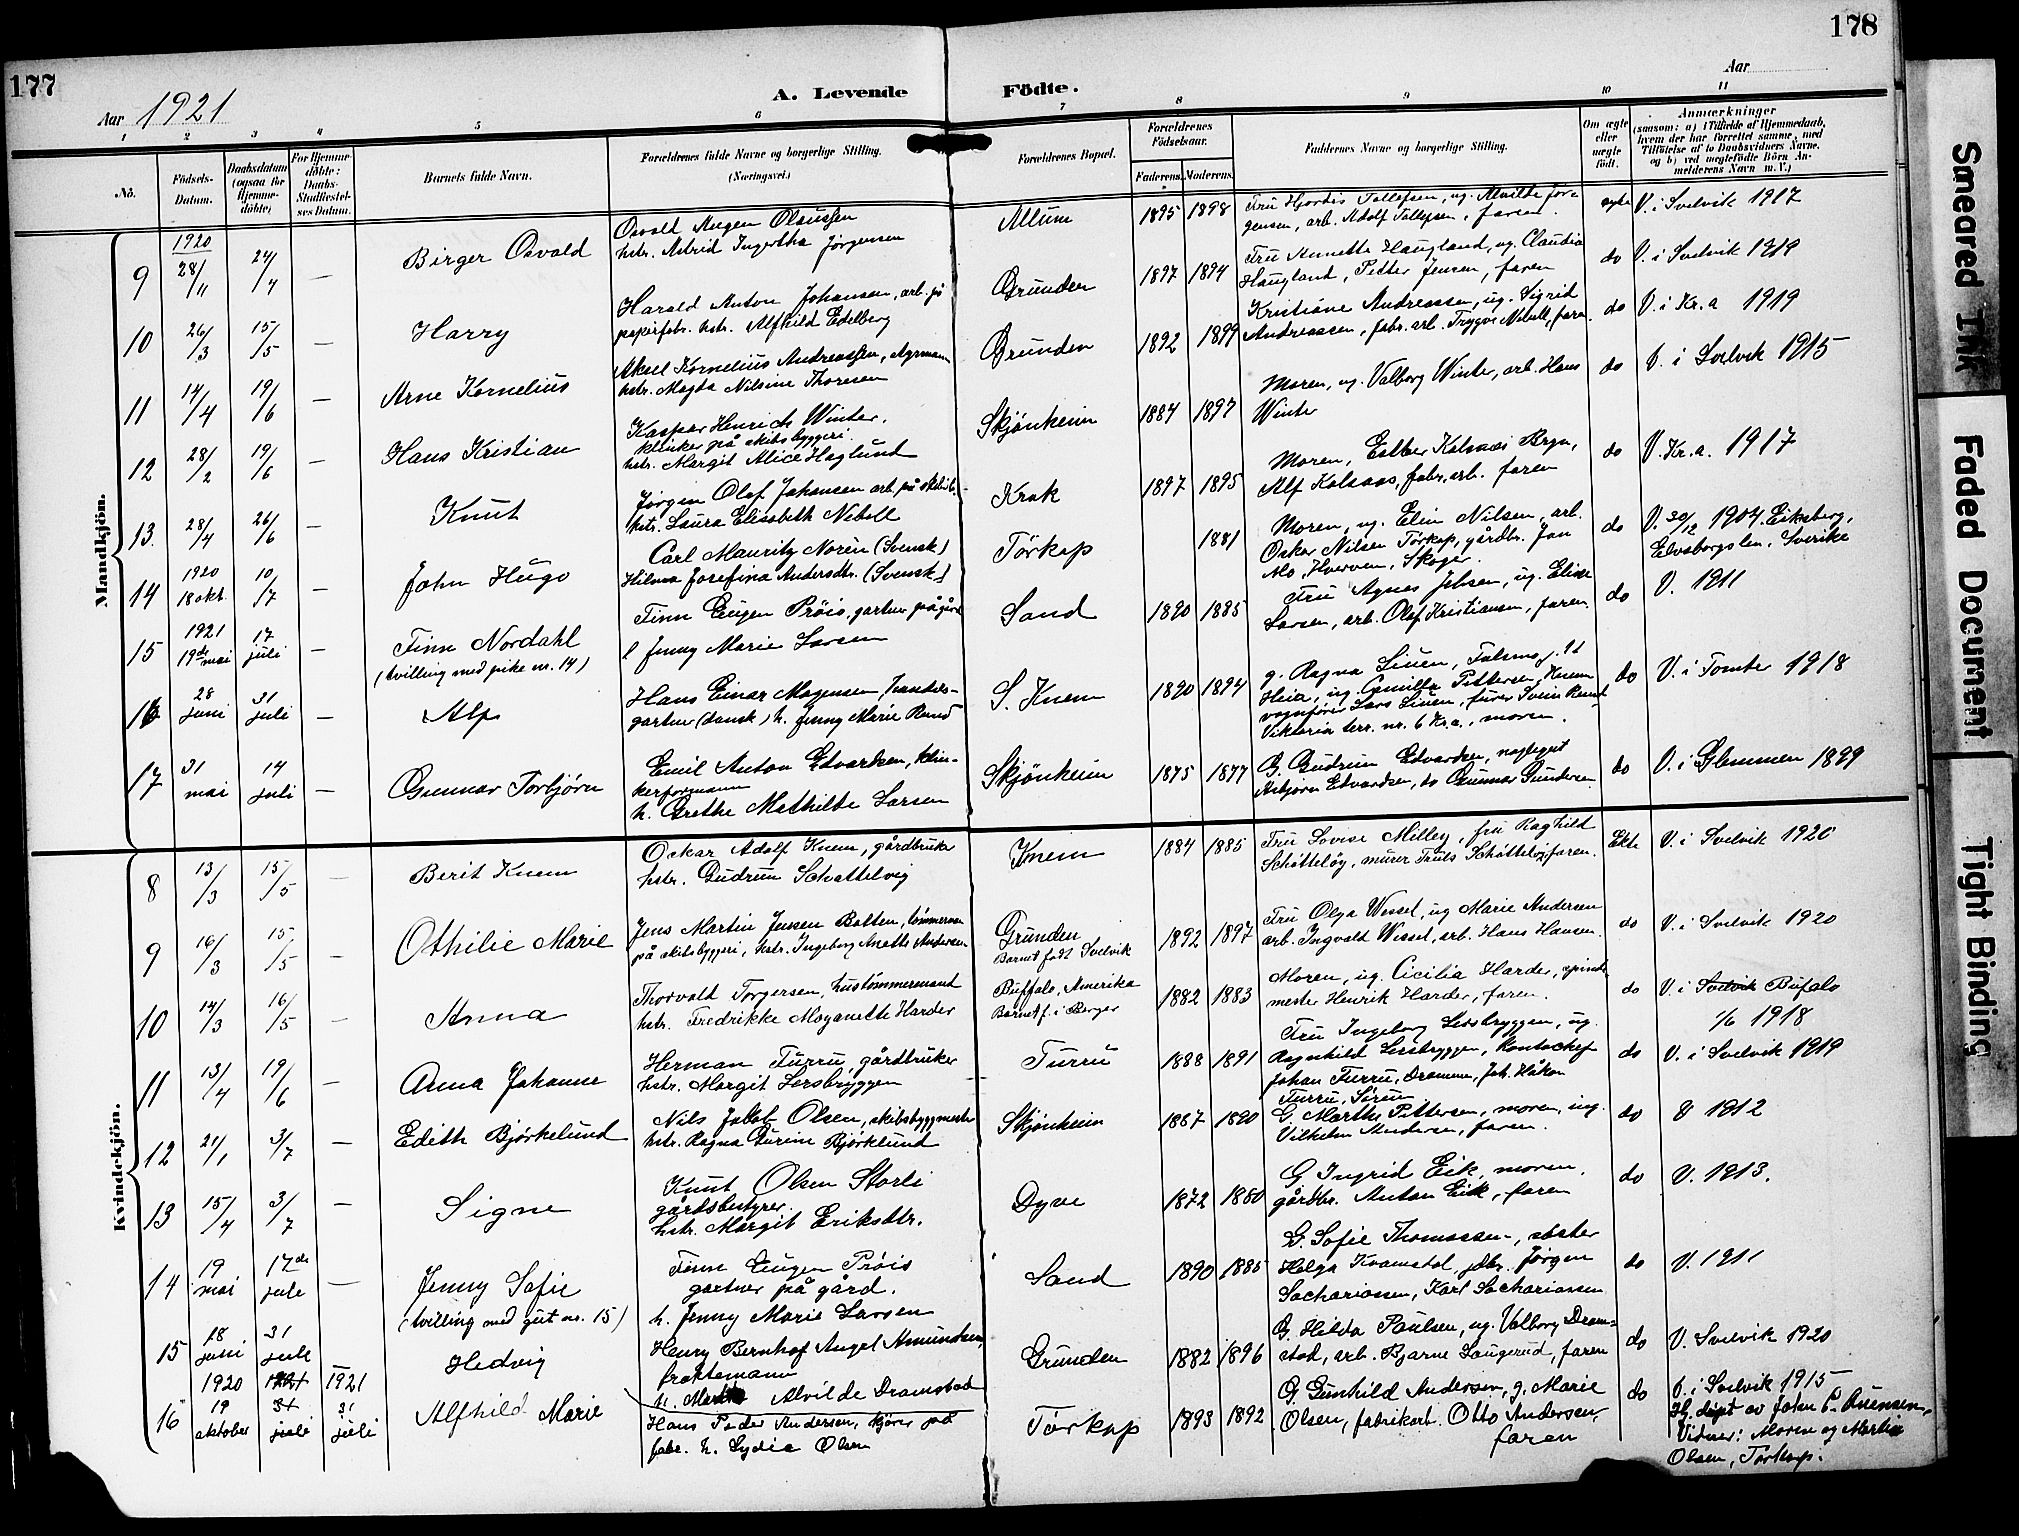 177
178
Aar 1921
A. Levende Födte.
Aar
1 2 3 4 5 6 7 8 9 10 11
No.
Födsels-Datum.
Daabsdatum (ogsaa for Hjemmedöbte)
For Hjemmedöbte: Daabs-Stadfæstelses Datum.
Barnets fulde Navn.
Forældrenes fulde Navne og borgerlige Stilling.
(Næringsvei.)
Forældrenes Bopæl.
Forældrenes Födselsaar.
Faderens. Moderens.
Faddernes Navne og borgerlige Stilling.
Om ægte eller uægte födt.
Anmærkninger
(saasom: a) i Tilfælde af Hjemmedaab, hvem der har forrettet samme, med Tilföielse af to Daabsvidners Navne, og b) ved uægtefödte Börn Anmelderens Navn m. V.)
Mandkjön.
9 1920 28/11 24/4 — Birger Osvald
Osvald Mugen Olaussen
hstr. Astrid Ingertha Jørgensen
Allum 1895 1898
Fru Hjørdis Tollefsen, ug. Alvilde Jørgensen, arb. Adolf Tollefsen, faren.
egte V. i Svelvik 1917
10 26/3 15/5 — Harry
Harald Anton Johansen, arb. på
papirfabr. hstr. Alfhild Edelberg
Grunden 1897 1894
Fru Annette Haugland, ug. Claudia
Haugland, Petter Jensen, faren
do V. i Svelvik 1919
11 14/4 19/6 — Arne Kornelius
Aksel Kornelius Andreassen,
hstr. Magda Nilsine Thoresen
Grunden 1892 1899
Kristiane Andreassen, ug. Sigrid
Andreassen, fabr. arb. Trygve Nebell, faren.
do V. i Kr.a 1919
12 28/2 19/6 — Hans Kristian
Kaspar Henrich Winter.
klinker på skibsbyggeri
hstr. Margit Alice Haglund
Skjønheim 1884 1897
Moren, ug. Valborg Winter, arb. Hans
Winter
do b. i Svelvik 1915
13. 28/4 26/6 — Knut
Jørgen Olaf Johansen arb. på skibsb.
hstr. Laura Elisabeth Nebell
Krok 1897 1895
Moren, Esther Kolsaas Bryn,
Alf Kolsaas, fabr. arb. faren
do V. Kr.a. 1917
14 1920 18 okt. 10/7 — John Hugo
Carl Mauritz Norén (Svensk)
Hilma Josefina Andersdtr. (Svensk)
Tørkop 1881
Moren, ug. Elin Nilsen, arb.
Oskar Nilsen Tørkop, gårdbr. Jan
Mo, Hverven, Skoger.
do V. 30/12 1904. Eiksberg,
Elvsborgs len. Sverike
15 1921 19de mai 17 juli — Finn Nordahl
(tvilling med pike nr. 14)
Finn Eugen Prøis, gartner på gård
Jenny Marie Larsen
Sand 1890 1885
Fru Agnes Jebsen, ug. Elise
Larsen, arb. Olaf Kristiansen, faren.
do V. 1911
16 28 juni 31 juli — Alf
Hans Einar Mogensen, handels-
gartner (dansk) h. Jenny Marie Rund
S. Knem 1890 1894
g. Ragna Linen,
Heia, ug. Camilla Pettersen, Knem
vognfører Lars Linen, fører Svein Rund
Viktoria terr. nr. 6 Kr.a., moren.
do V. i Tomter 1918
17 31 mai 14 juli — Gunnar Torbjørn
Emil Anton Edvardsen, klin-
kerformann
h. Grethe Mathilde Larsen
Skjønheim 1875 1877
G. Gudrun Edvardsen, naglegut
Asbjørn Edvardsen, do Gunnar Gundersen
do V. i Glemmen 1899
Kvindekjön.
8 13/3 15/5 — Berit Knem
Oskar Adolf Knem, gårdbruker
hstr. Gudrun Schøttelvig
Knem 1884 1885
Fru Lovise Milley, fru Raghild
Schøtteløy, murer Truls Schøtteløy, faren.
Ekte V. i Svelvik 1920
9 16/3 15/5 — Othilie Marie
Jens Martin Jensen Batten, tømmermn
på skibsbyggeri, hstr. Ingeborg Anette Andersen
Grunden
Barnet født Svelvik
1892 1897
Fru Olga Wessel, ug Marie Andersen
arb. Ingvald Wessel, arb. Hans Hansen.
do V. i Svelvik 1920
10 14/3 16/5 — Anna
Thorvald Torgersen, hustømmermand
hstr. Fredrikke Moyanette Harder
Buffalo, Amerika
Barnet f. i Berger
1882 1883
Moren, ug. Cicilia Harder, spinde-
mester Henrik Harder, faren.
do V. i Svelvik Bufalo
1/6 1918
11 13/4 19/6 — Anna Johanne
Herman Furru, gårdbruker
hstr. Margit Lersbryggen
Furru 1888 1891
Fru Ingeborg Lersbryggen, ug.
Ragnhild Lersbryggen, kontorchef
Johan Furru, Drammen, Joh. Håkon
Furru, Sørum
do V. i Svelvik 1919
12 21/1 3/7 — Edith Bjørkelund
Nils Jakob Olsen, skibsbyggmester
hstr. Ragna Purine Bjørklund
Skjønheim 1887 1890
G. Marthe Pettersen, moren, ug.
Vilhelm Andersen, faren.
do V 1912
13 15/4 3/7 — Signe
Knut Olsen Storli
gårdsbestyrer.
hstr. Margit Eriksdtr.
Dyve 1872 1880
G Ingrid Eik, moren,
gårdbr. Anton Eik, faren
do V. 1913.
14 19 mai 17de jule — Jenny Sofie
(tvilling med gut nr. 15)
Finn Eugen Prøis
gartner på gård.
h. Jenny Marie Larsen
Sand 1890 1885
G. Sofie Thomassen, søster
Helga Kvamstol, gdbr. Jørgen
Sachariassen, Karl Sachariassen
do V. 1911
15 18 juni 31 jule Hedvig
Henry Bernhof Angel Amundsen,
fraktemann
h. Alvilde Dramstad
Grunden 1882 1896
G. Hilda Paulsen, ug. Valborg Dram-
stad, arb. Bjarne Laugerud, faren
do V. Svelvik 1920
16 1920 19 oktober 1921 31 juli 1921 31 juli Alfhild Marie
Hans Peder Andersen, kjører på
fabr. h. Lydia Olsen
Tørkop 1893 1892
G. Gunhild Andersen, g. Marie
Olsen, fabrikarb. Otto Andersen,
faren
do b. i Svelvik 1915
Hj. døpt av Johan C. Auensen.
Vidner: Moren og Martin
Olsen, Tørkop.
Smeared Ink
Faded Document
Tight Binding